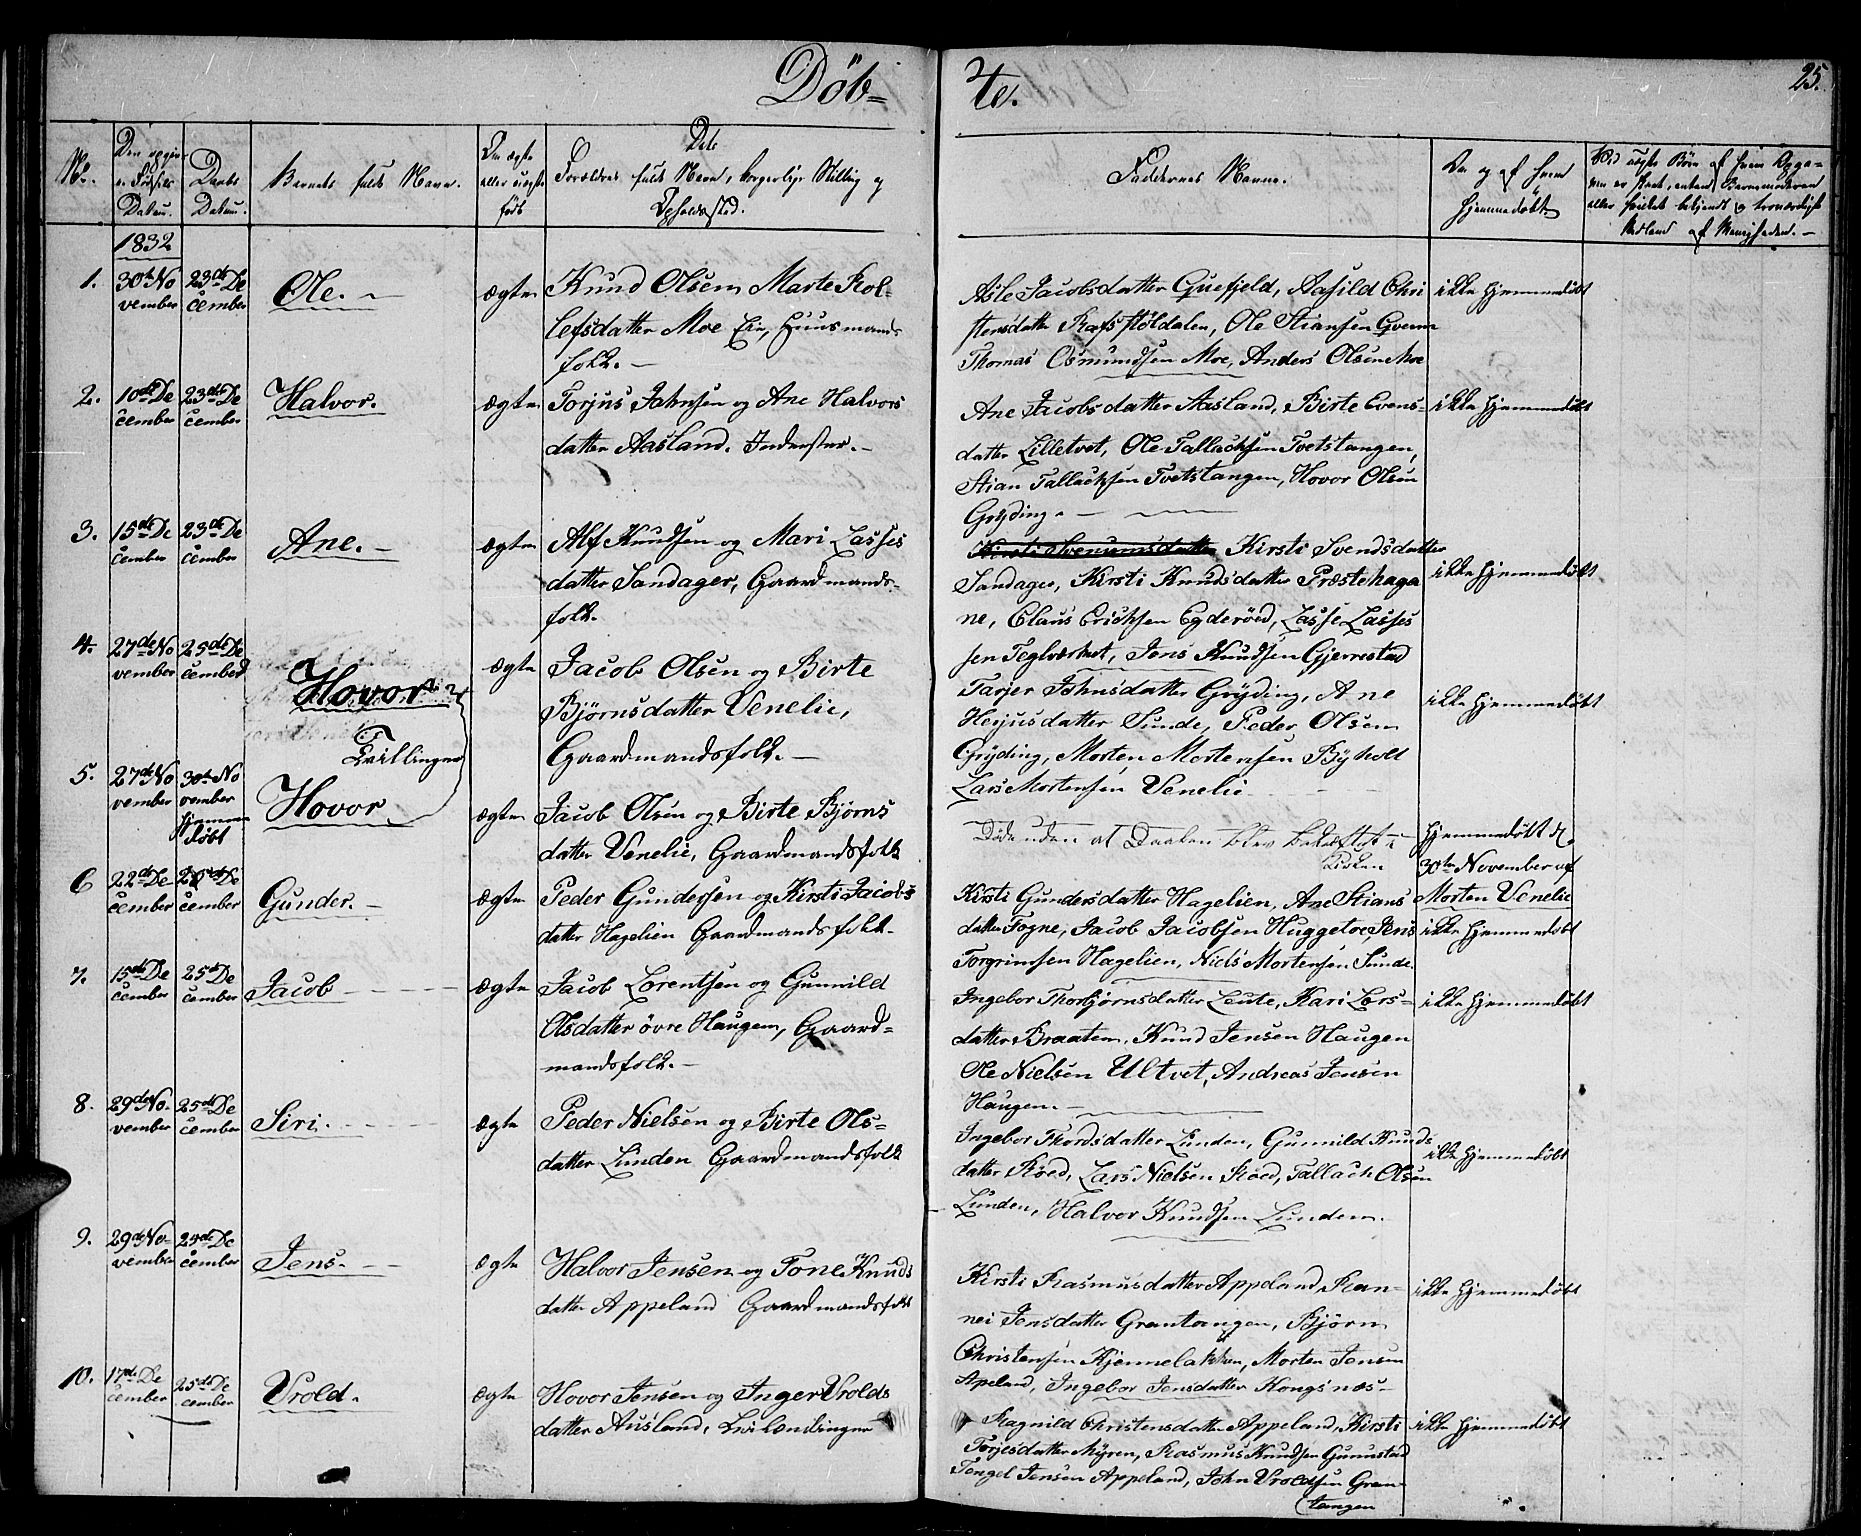 Døb=
te.
25.
No.
Den opgivne Fødsels Datum.
Daabs Datum.
Barnets fulde Navn.
Om ægte eller uægte født
Dets Forældres fulde Navn, borgerlige Stilling og Opholdssted.
Faddernes Navne.
Om og af hvem hjemmedøbt
Ved uægte Børn af hvem Opga=
1832
1.
30te No
vember
23de De
cember
Ole.
ægte
Knud Olsen Marte Rol=
lefsdatter Moe Eie, Huusmands
folk.
Asle Jacobsdatter Guefjeld, Aasild Chri
stensdatter Ræfsflöldalen, Ole Stiansen
Thomas Osmundsen Moe, Anders Olsen Moe
ikke hjemmedøbt
2.
10de De
cember
23de De
cember
Halvor.
ægte
Torjus Jahnsen og Ane Halvors
datter Aasland. Inderster.
Ane Jacobsdatter Aasland, Birte Evens=
datter Lilletvet, Ole Tallacksen Tvetstangen,
Stian Tallacksen Tvetstangen, Hovor Olsen
Grÿding.
ikke hjemmedøbt
3.
15de De
cember
23de De
cember
Ane.
ægte
Alf Knudsen og Mari Lasses
datter Sandager, Gaardmands=
folk.
Kirsti Svendsdatter
Sandager, Kirsti Knudsdatter Præstehaga
ne, Claus Erichsen Egderöed, Lasse Lasses
sen Teglværket, Jens Knudsen Gjerrestad
ikke hjemmedøbt
4.
27de No
vember
25de De
cember
Hovor
Tvillinger
ægte
Jacob Olsen og Birte
Bjørnsdatter Venelie,
Gaardmandsfolk.
Tarjer Johnsdatter Grÿding, Ane
Herjusdatter Sunde, Peder Olsen
Grÿding, Morten Mortensen Bÿholt
Lars Mortensen Venelie
ikke hjemmedøbt
5.
27de No
vember
30te No
vember
hjemme
døbt
Hovor
ægte
Jacob Olsen og Birte Bjørns
datter Venelie, Gaardmandsfolk
Døde uden at Daaben blev bekræftet i
Kirken
hjemmedøbt d.
30te November af
Morten Venelie
6
22de De
cember
De
cember
Gunder.
ægte
Peder Gundersen og Kirsti Jacobs
datter Hagelien Gaardmandsfolk.
Kirsti Gundersdatter Hagelien, Ane Stians
datter Fogne, Jacob Jacobsen Huggetoe, Jens
Torgrimsen Hagelien, Niels Mortensen Sunde.
ikke hjemmedøbt
7.
15de De
cember
25de De
cember
Jacob
ægte
Jacob Lorentsen og Gunnild
Olsdatter övre Haugen, Gaard=
mandsfolk.
Ingebor Thorbjørnsdatter Leute, Kari Lars=
datter Braaten, Knud Jensen Haugen
Ole Nielsen Ultvet, Andreas Jensen
Haugen.
ikke hjemmedøbt
8.
29de No
vember
25de De
cember
Siri.
ægte
Peder Nielsen og Birte Ols=
datter Lunden Gaardmandsfolk
Ingebor Thordsdatter Lunden, Gunnild Knuds
datter Röed, Lars Nielsen Röed, Tallach Olsen
Lunden, Halvor Knudsen Lunden.
ikke hjemmedøbt
9.
29de No
vember
25de De
cember
Jens.
ægte
Halvor Jensen og Tone Knuds
datter Appeland Gaardmandsfolk
Kirsti Rasmusdatter Appeland, Ran=
nei Jensdatter Grantangen, Bjørn
Christensen Kjennelakken, Morten Jensen
Apeland, Ingebor Jensdatter Kongsnæs
ikke hjemmedøbt
10.
17de De
cember
25de De
cember
Vrold.
ægte
Hovor Jensen og Inger Vrolds
datter Ausland,
Ragnild Christensdatter Appeland, Kirsti
Torjesdatter Mÿren, Rasmus Knudsen Gunnestad
Tengel Jensen Appeland, John Vroldsen Gran
tangen
ikke hjemmedøbt